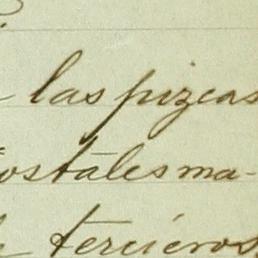 las pizcas
ostales ma-
terceros